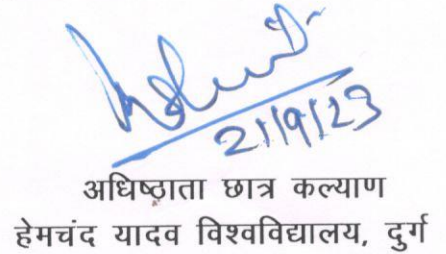 21/9/23
अधिष्ठाता छात्र कल्याण
हेमचंद यादव विश्वविद्यालय, दुर्ग